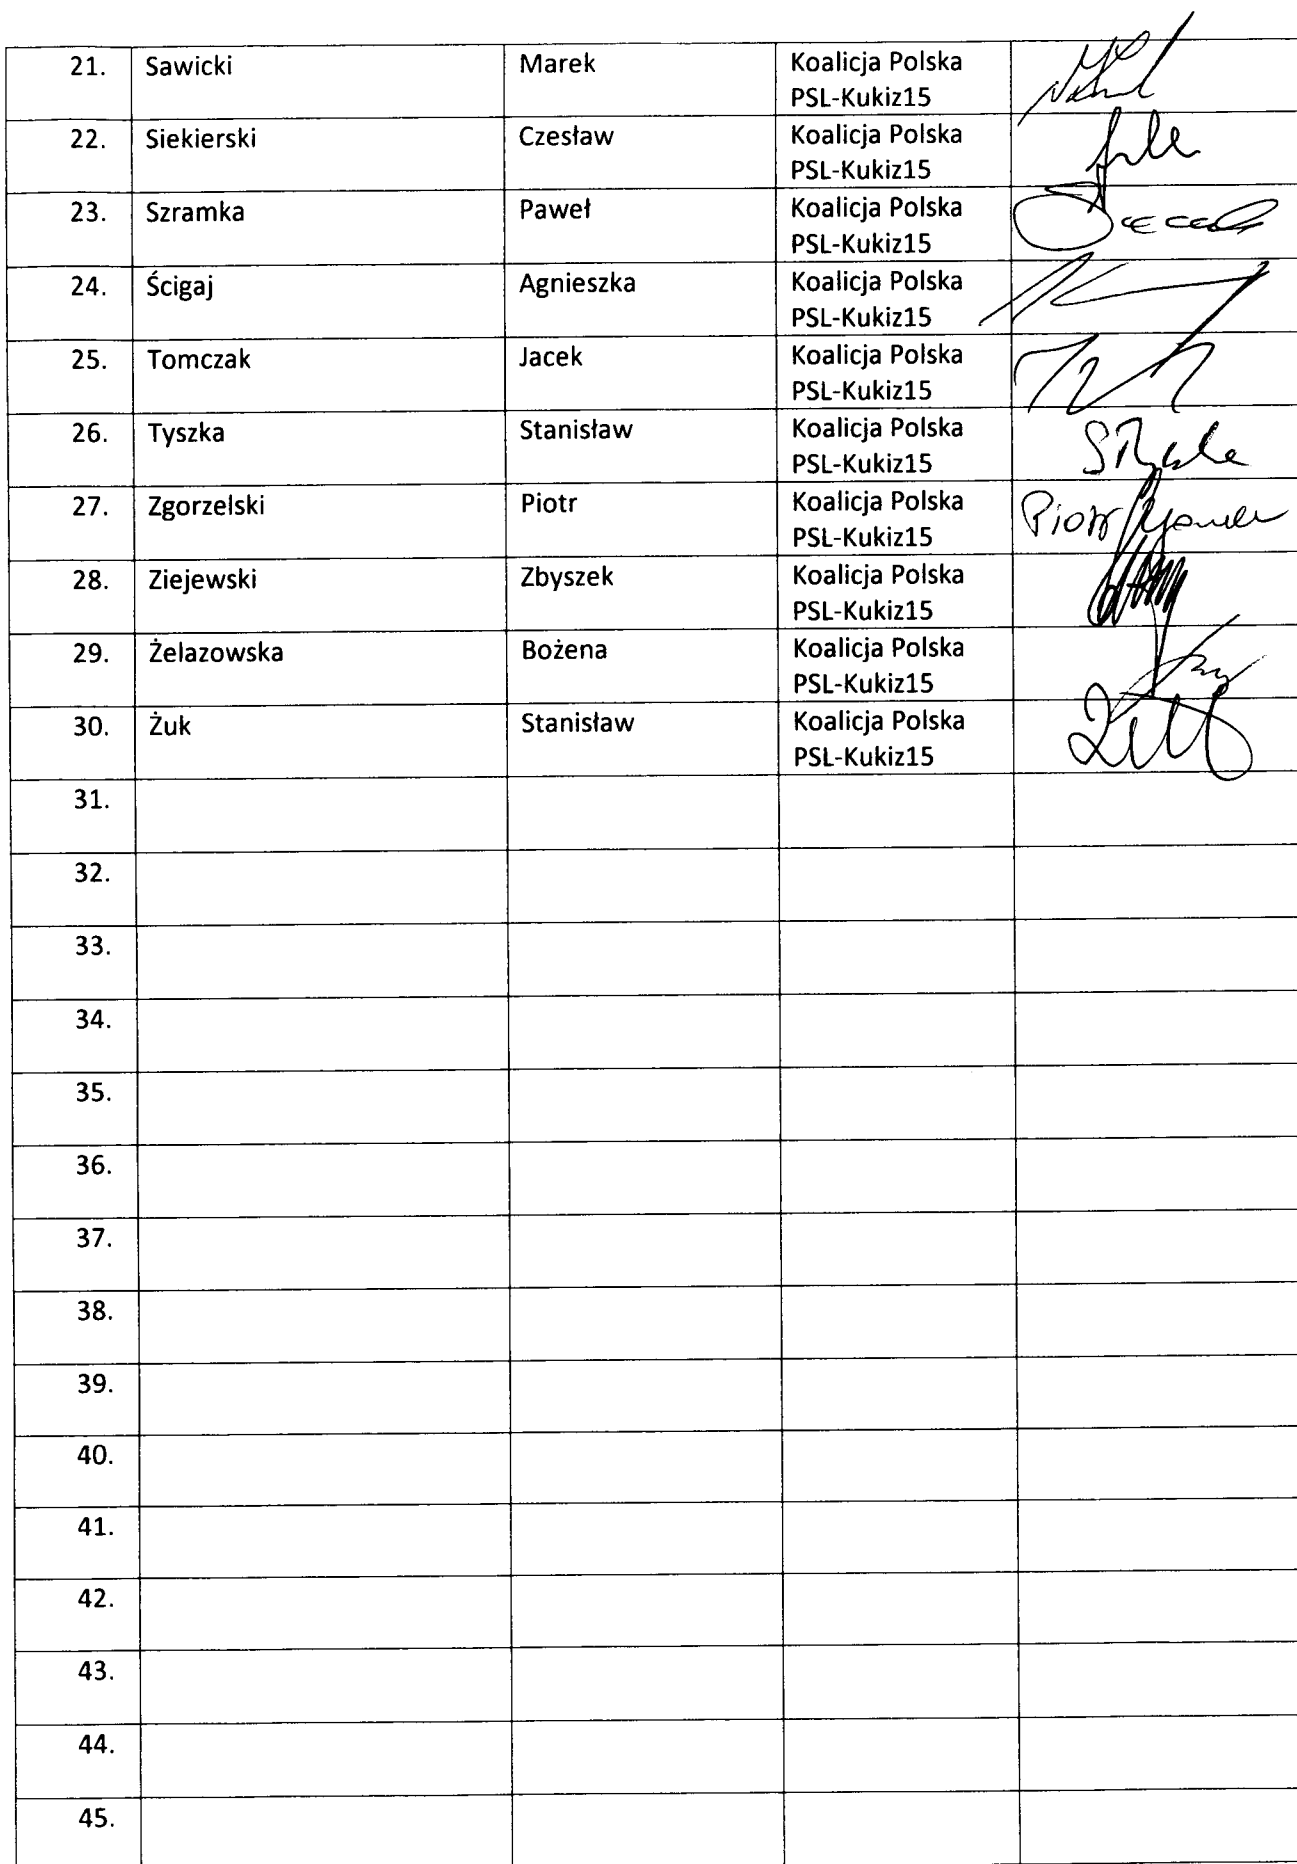 21. Sawicki Marek Koalicja Polska
PSL-Kukiz15
22. Siekierski Czesław Koalicja Polska
PSL-Kukiz15
23. Szramka Paweł Koalicja Polska
PSL-Kukiz15
24. Ścigaj Agnieszka Koalicja Polska
PSL-Kukiz15
25. Tomczak Jacek Koalicja Polska
PSL-Kukiz15
26. Tyszka Stanisław Koalicja Polska
PSL-Kukiz15
27. Zgorzelski Piotr Koalicja Polska Piotr
PSL-Kukiz15
28. Ziejewski Zbyszek Koalicja Polska
PSL-Kukiz15
29. Żelazowska Bożena Koalicja Polska
PSL-Kukiz15
30. Żuk Stanisław Koalicja Polska
PSL-Kukiz15
31.
32.
33.
34.
35.
36.
37.
38.
39.
40.
41.
42.
43.
44.
45.